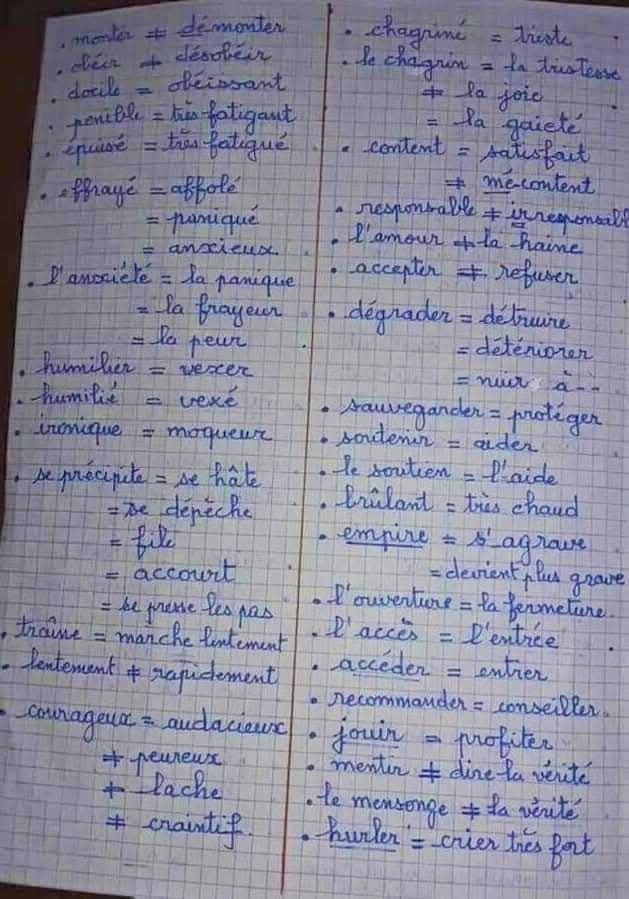 . monter ≠ démonter
. obéir ≠ désobéir
. docile = obéissant
. penible = très fatigant
. épuisé = très fatigué
. effrayé = affolé
= paniqué
= anxieux
. l'anxiété = la panique
= la frayeur
= la peur
. humilier = vexer
. humilié = vexé
. ironique = moqueur
. se précipite = se hâte
= se dépêche
= file
= accourt
= se presse les pas
. traîne = marche lentement
. lentement ≠ rapidement
. courageux = audacieux
≠ peureux
≠ lache
≠ craintif.
. chagriné = triste
. le chagrin = la tristesse
≠ la joie
= la gaieté
. content = satisfait
≠ mé-content
. responsable ≠ irresponsabl
. l'amour ≠ la haine
. accepter ≠ refuser
. dégrader = détruire
= détériorer
= nuir à--
. sauvegander = protéger
. soutenir = aider
. le soutien = l'aide
. brûlant = très chaud
. empire = s'agrave
= devient plus grave
. l'ouverture = la fermeture.
. l'accès = l'entrée
. accéder = entrer
. recommander = conseiller.
. jouir = profiter
. mentir ≠ dire la vérité
. le mensonge ≠ la vérité
. hurler = crier très fort